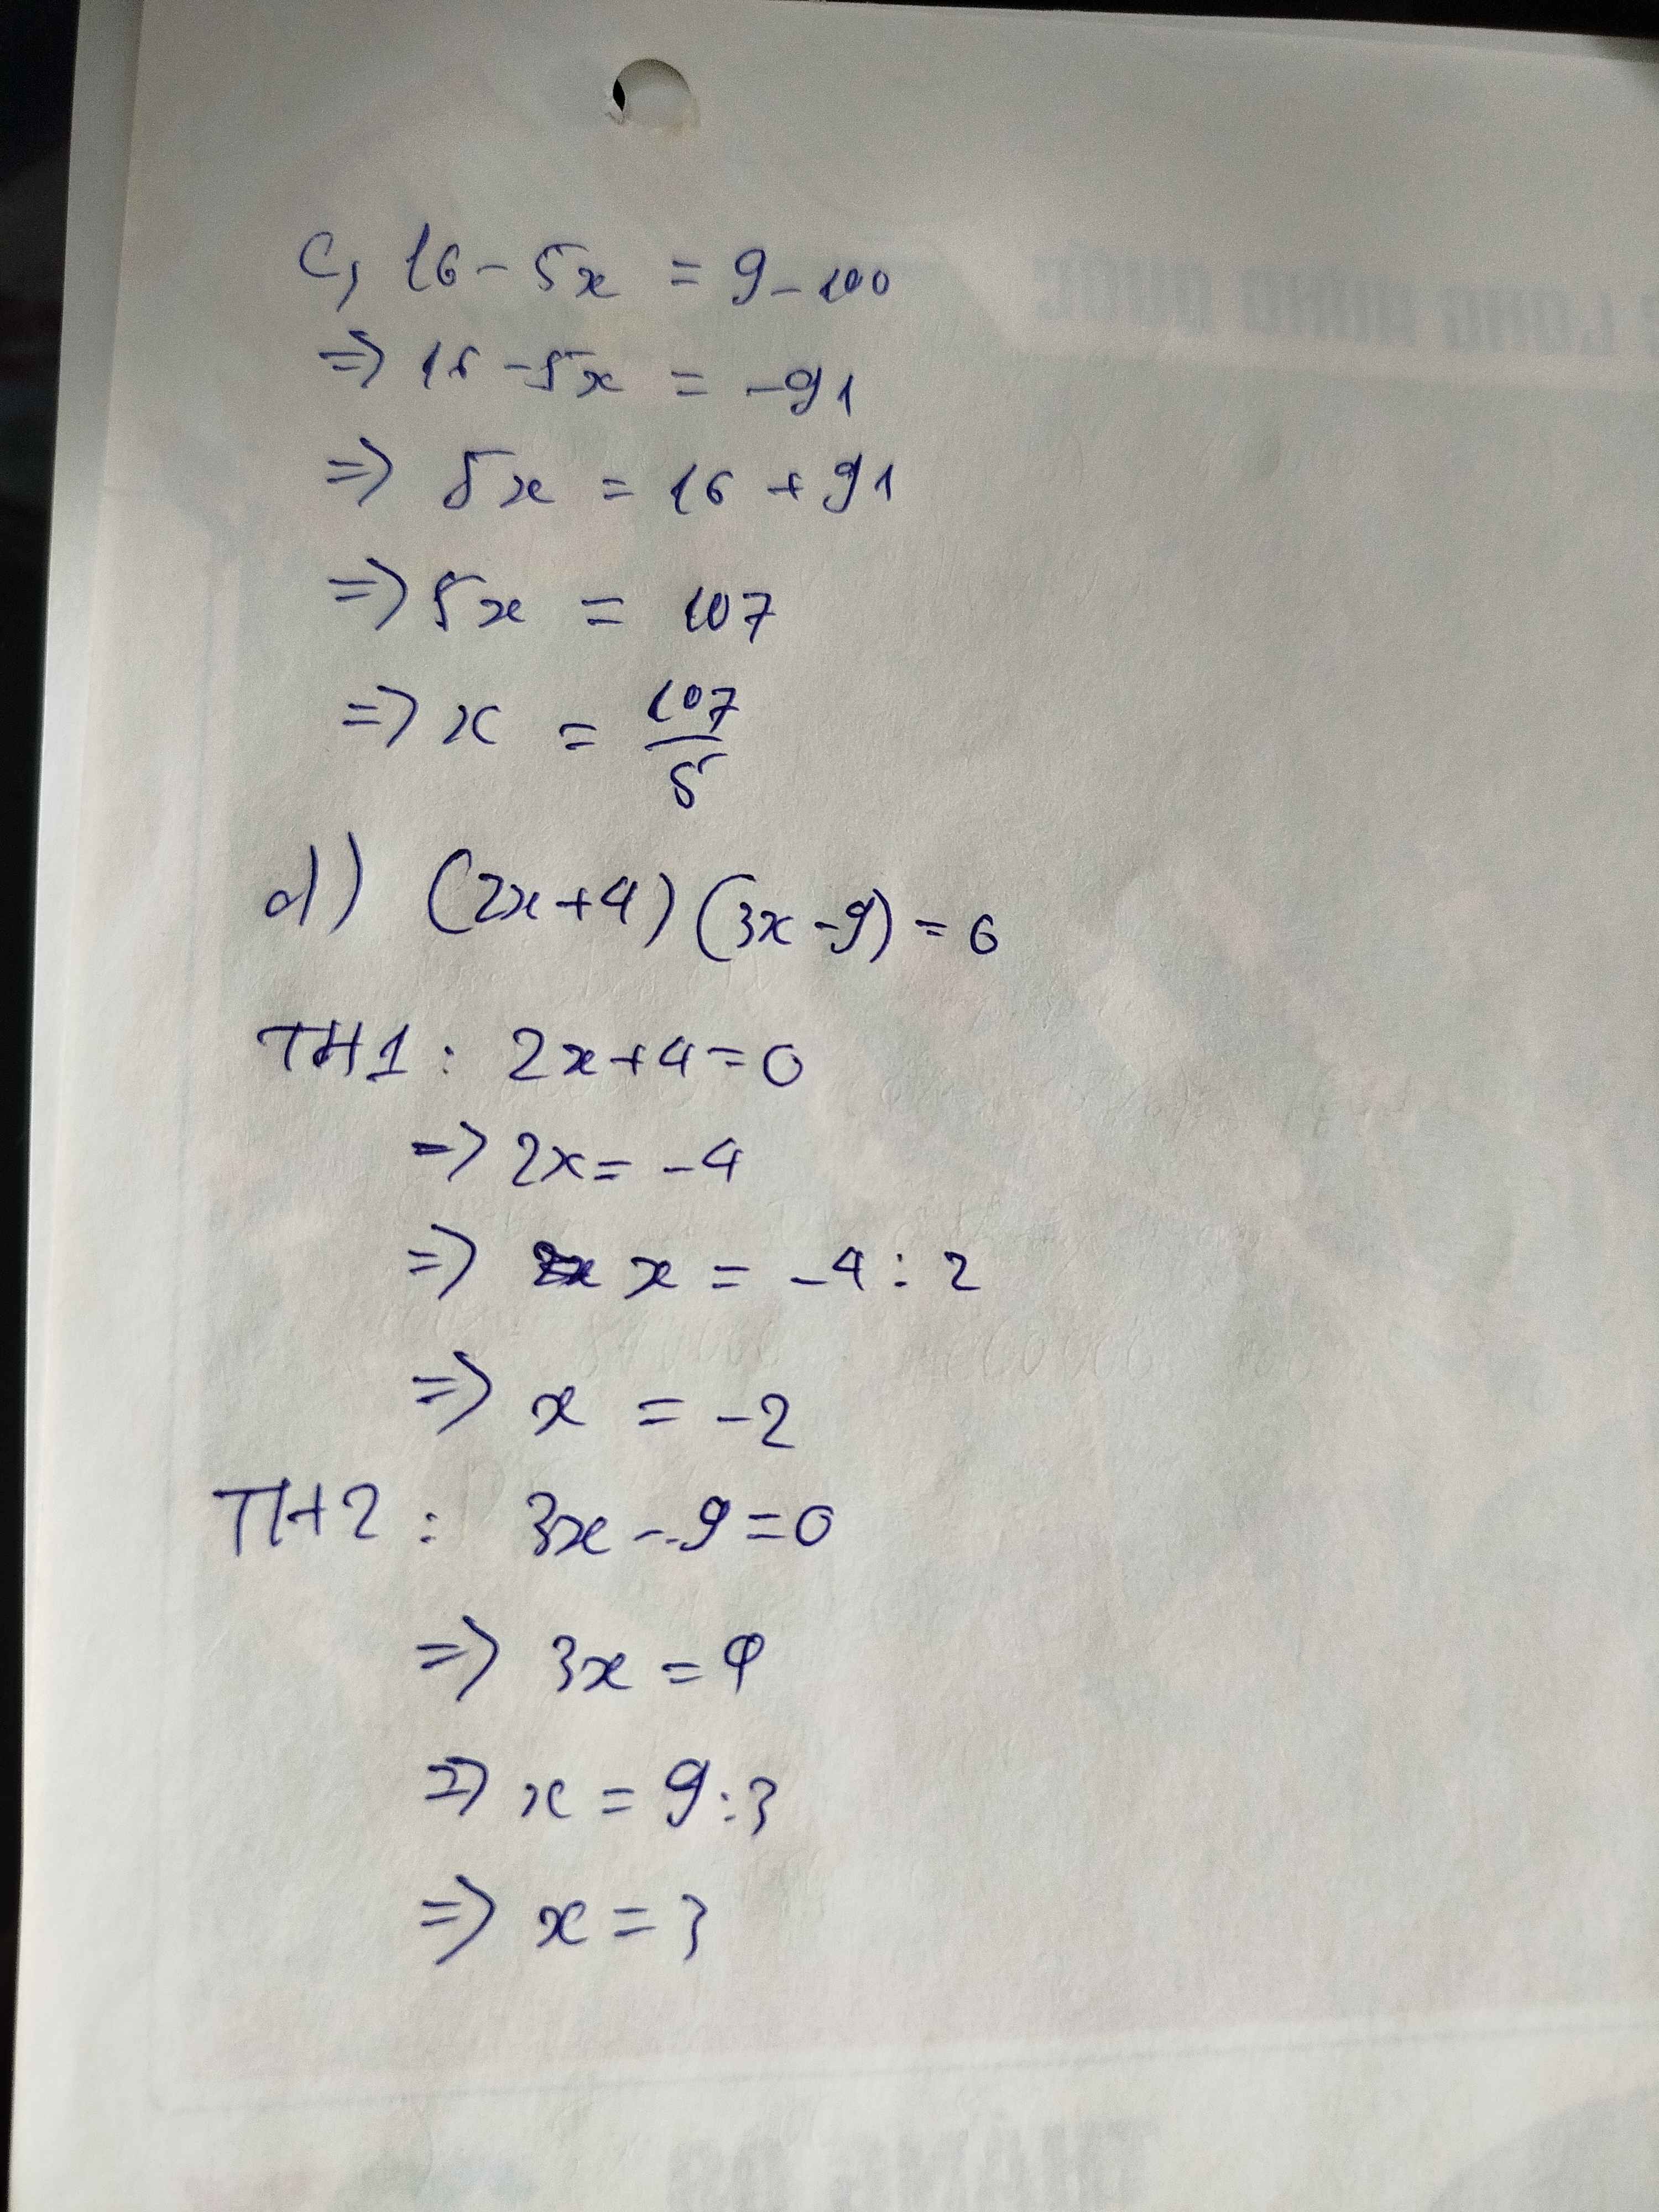 c, 16 - 5x = 9 - 100
=> 16 - 5x = -91
=> 5x = 16 + 91
=> 5x = 107
=> x = 107/5
d) (2x+4)(3x-9) = 6
TH1 : 2x+4=0
=> 2x = -4
=> x = -4 : 2
=> x = -2
TH2 : 3x - 9 = 0
=> 3x = 9
=> x = 9 : 3
=> x = 3